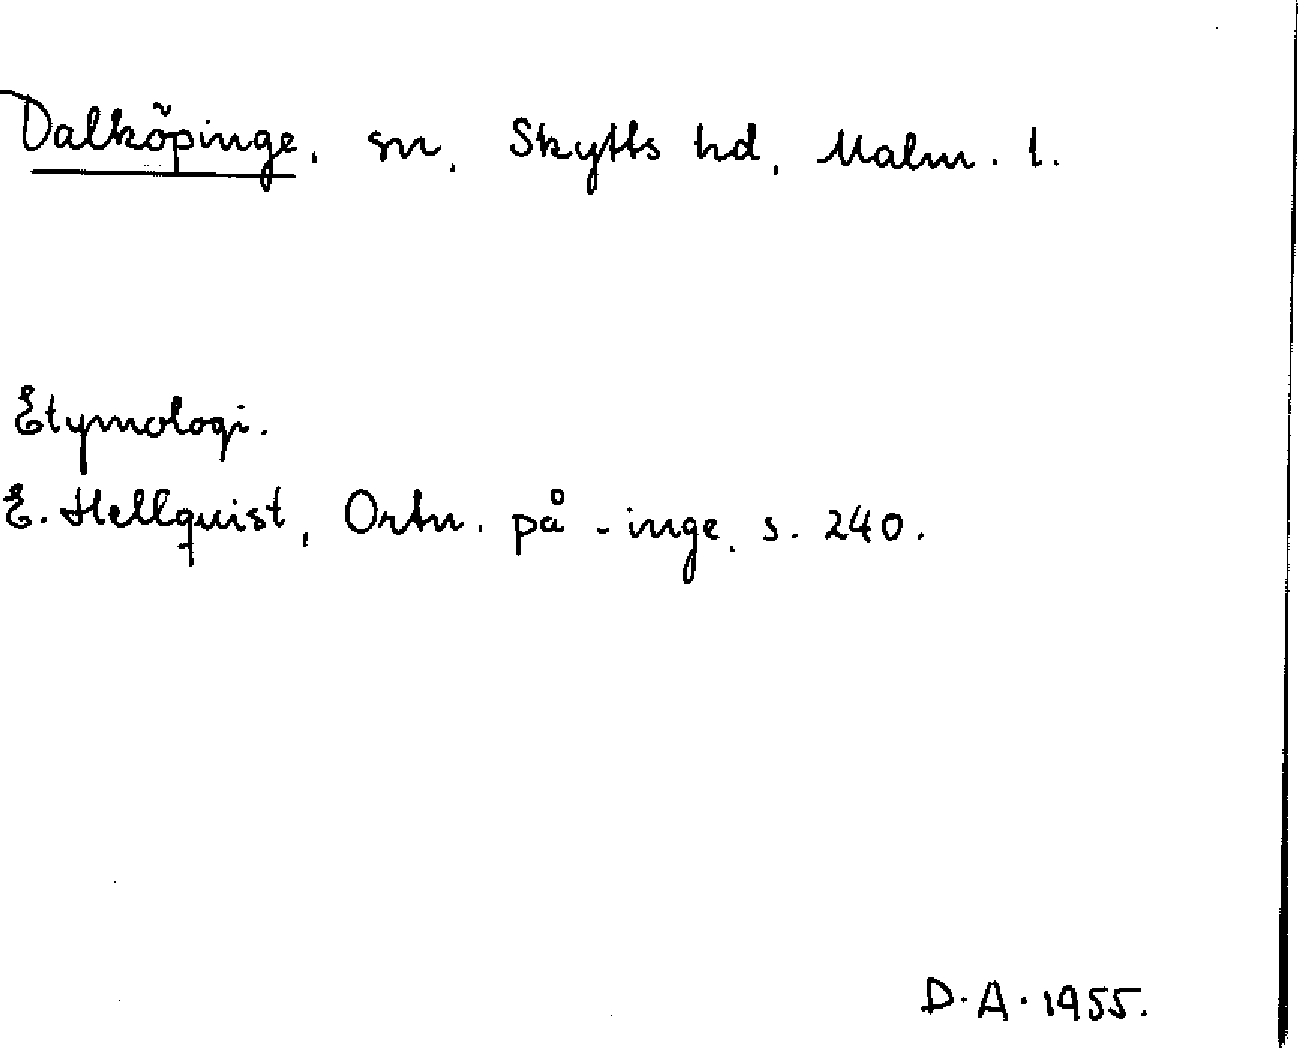 Dalköpinge, sn, Skytts hd, Malm. l.
Etymologi.
E. Hellquist, Ortn. på -inge, s. 240.
D.A. 1955.